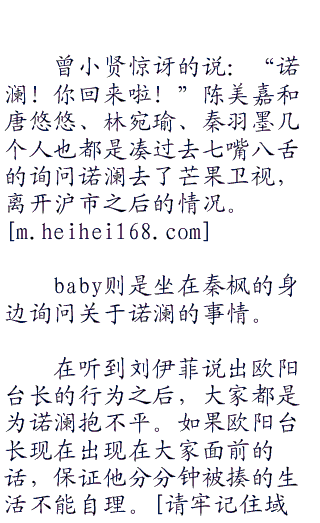 曾小贤惊讶的说：“诺
澜！你回来啦！”陈美嘉和
唐悠悠、林宛瑜、秦羽墨几
个人也都是凑过去七嘴八舌
的询问诺澜去了芒果卫视，
离开沪市之后的情况。
[m.heihei168.com]
baby则是坐在秦枫的身
边询问关于诺澜的事情。
在听到刘伊菲说出欧阳
台长的行为之后，大家都是
为诺澜抱不平。如果欧阳台
长现在出现在大家面前的
话，保证他分分钟被揍的生
活不能自理。[请牢记住域